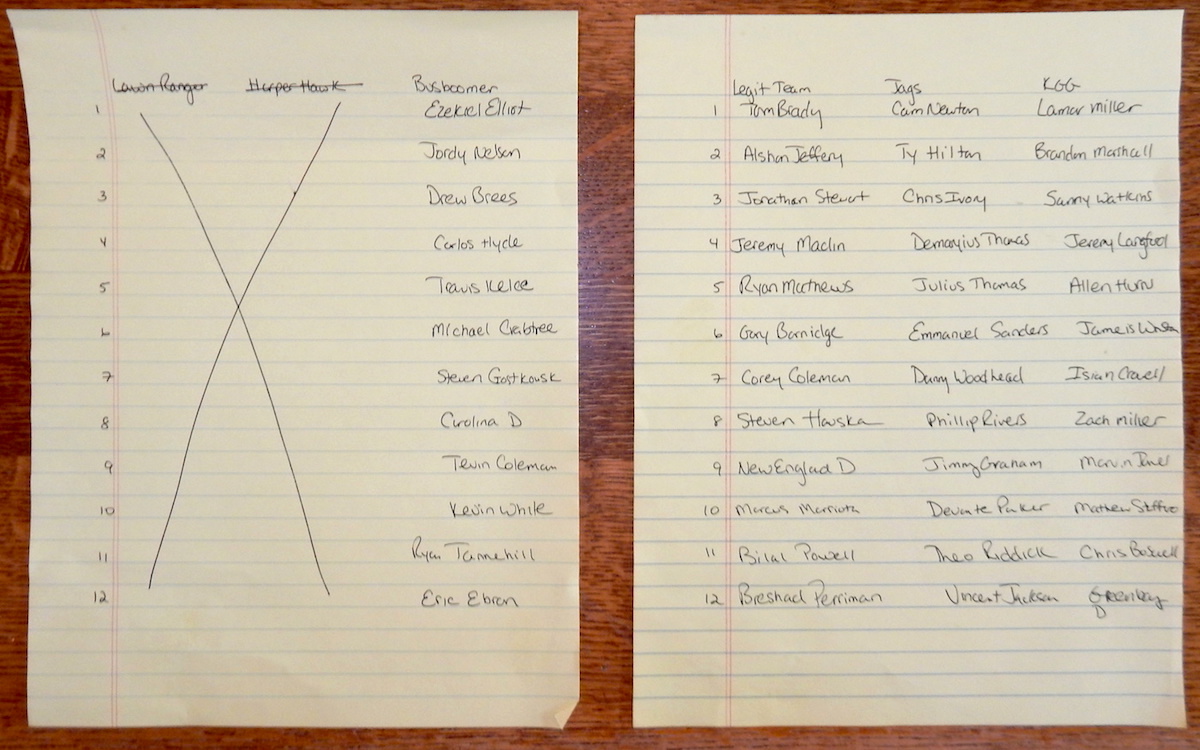 Lawn Ranger Harper Hawk Busboomer
1 Ezekiel Elliot
2 Jordy Nelson
3 Drew Brees
4 Carlos Hyde
5 Travis Kelce
6 Michael Crabtree
7 Steven Gostkousk
8 Carolina D
9 Tevin Coleman
10 Kevin White
11 Ryan Tannehill
12 Eric Ebron
Legit Team Jags KGG
1 Tom Brady Cam Newton Lamar Miller
2 Alshon Jeffery Ty Hilton Brandon Marshall
3 Jonathan Stewart Chris Ivory Sammy Watkins
4 Jeremy Maclin Demaryius Thomas Jeremy Langford
5 Ryan Mathews Julius Thomas Allen Hurn
6 Gary Barnidge Emmanuel Sanders Jameis Winston
7 Corey Coleman Danny Woodhead Isiah Crowell
8 Steven Hauska Phillip Rivers Zach Miller
9 New Englad D Jimmy Graham Marvin Jones
10 Marcus Marriota Devante Parker Mathew Staffor
11 Bilal Powell Theo Riddick Chris Boswell
12 Breshad Perriman Vincent Jackson Greenbay D